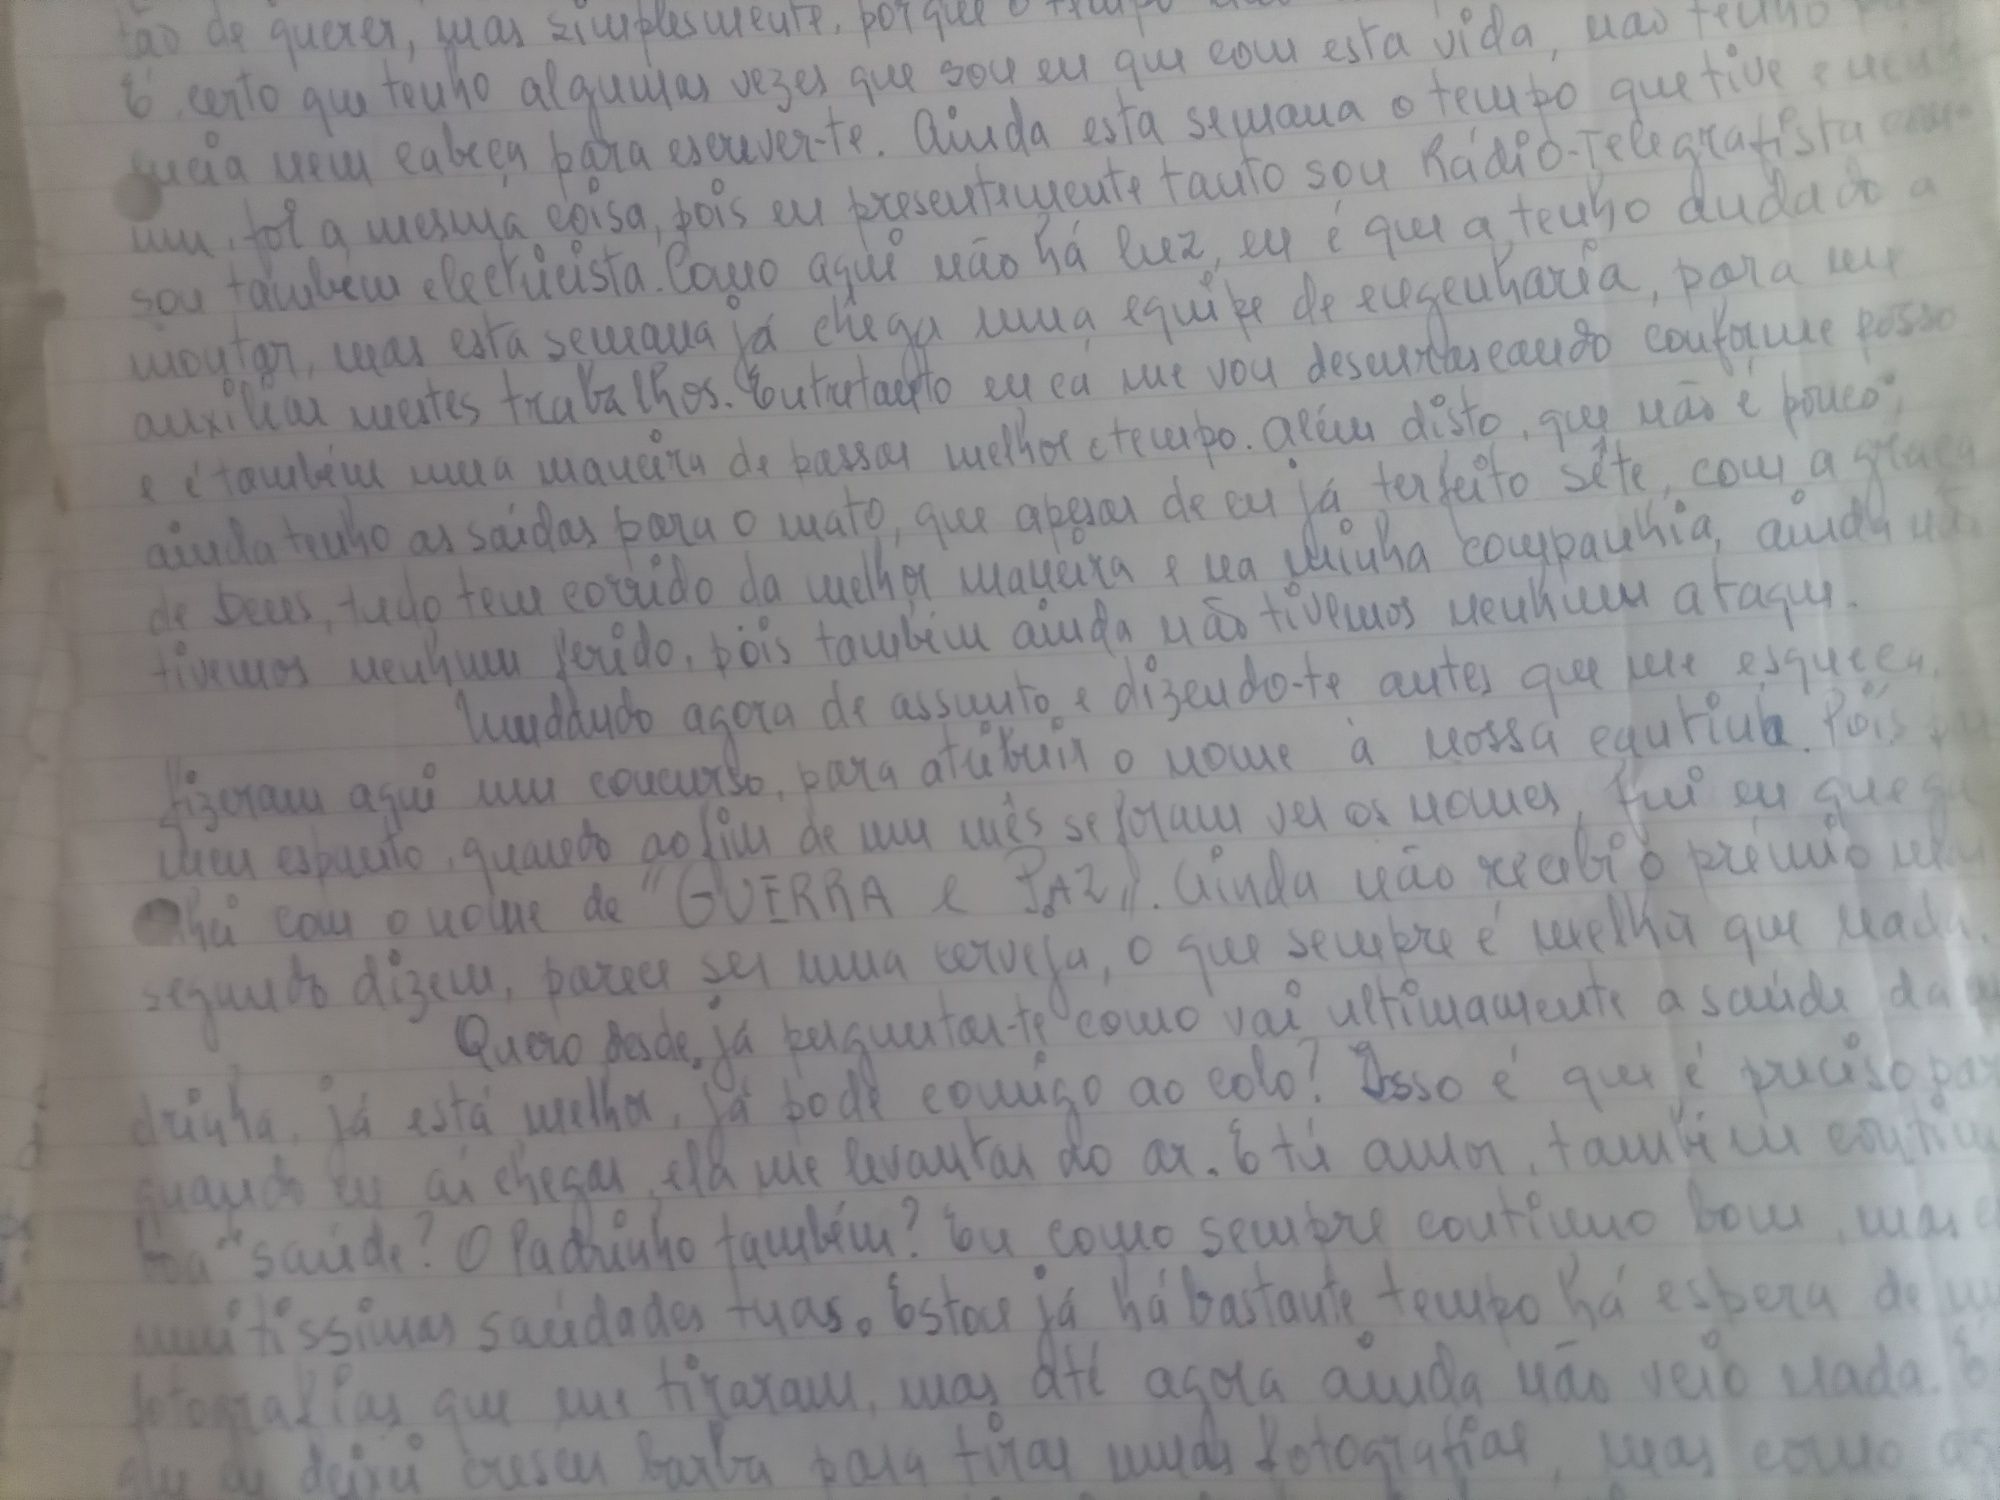 tão de querer, mas simplesmente, porque o tempo
É certo que tenho algumas vezes que sou eu que com esta vida, não tenho
nem cabeça para escrever-te. Ainda esta semana o tempo que tive e
um, foi a mesma coisa, pois eu presentemente tanto sou Rádio-Telegrafista
sou também electricista. Como aqui não há luz, eu é que a tenho andado a
montar, mas esta semana já chega uma equipe de engenharia, para me
auxiliar nestes trabalhos. Entretanto eu cá me vou desenrascando conforme posso
e é também uma maneira de passar melhor o tempo. Além disto, que não é pouco,
ainda tenho as saídas para o mato, que apesar de eu já ter feito sête, com a graça
de Deus, tudo tem corrido da melhor maneira e na minha companhia, ainda não
tivemos nenhum ferido, pois também ainda não tivemos nenhum ataque.
Mudando agora de assunto e dizendo-te antes que me esqueça,
fizeram aqui um concurso, para atribuir o nome à nossa cantina. Pois
meu espanto, quando ao fim de um mês se foram ver os nomes, fui eu que ga
nhei com o nome de "GUERRA e PAZ". Ainda não recebi o prémio
segundo dizem, parece ser uma cerveja, o que sempre é melhor que nada.
Quero desde já perguntar-te como vai ultimamente a saúde da
drinha, já está melhor, já pode comigo ao colo? Isso é que é preciso
quando eu aí chegar, ela me levantar do ar. E tú amor, também
boa saúde? O Padrinho também? Eu como sempre continuo bom, mas
muitissimas saúdades tuas. Estou já há bastante tempo há espera de
fotografias que me tiraram, mas até agora ainda não veio nada. E
que eu deixei crescer barba para tirar umas fotografias, mas como as